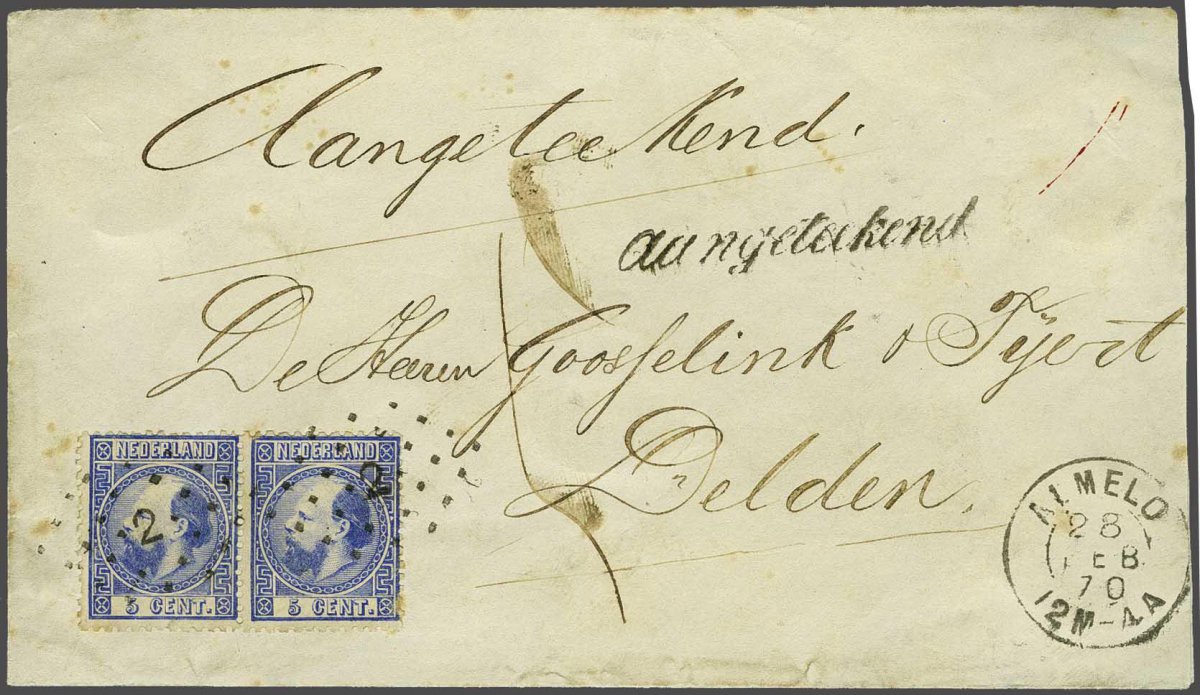 Aangeteekend.
aangeteekend
De Heeren Goosselink & Tijert
Delden,
NEDERLAND NEDERLAND
2 2
5 CENT. 5 CENT.
ALMELO
28
FEB
70
12M-4A